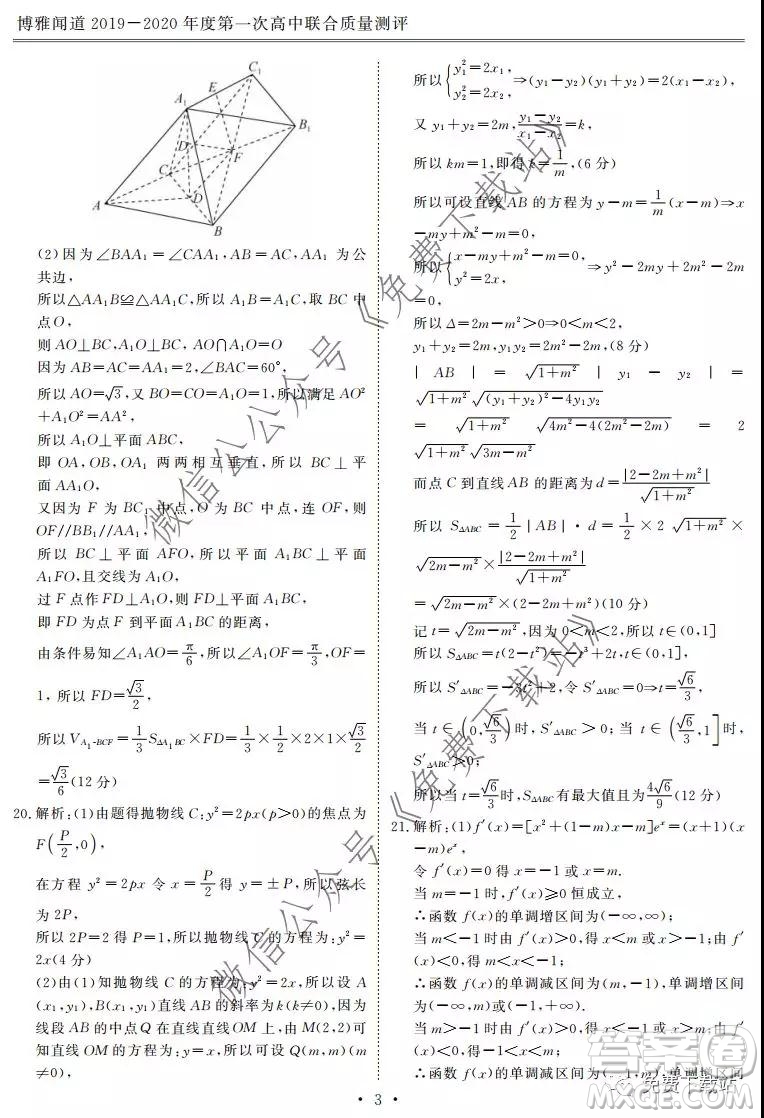 博雅闻道 2019－2020 年度第一次高中联合质量测评
C₁
E
A₁
B₁
D
F
C
A
D
B
(2)因为∠BAA₁=∠CAA₁,AB=AC,AA₁ 为公
共边,
所以△AA₁B≌△AA₁C,所以 A₁B=A₁C,取 BC 中
点O,
则 AO⊥BC,A₁O⊥BC, AO∩A₁O=O
因为 AB=AC=AA₁=2,∠BAC=60°,
所以 AO=√3,又 BO=CO=A₁O=1,所以满足 AO²
+A₁O²=AA²,
所以 A₁O⊥平面 ABC,
即 OA,OB,OA₁ 两两相互垂直,所以 BC⊥平
面 AA₁O,
又因为 F 为 BC₁ 中点,O 为 BC 中点,连 OF,则
OF//BB₁//AA₁,
所以 BC⊥平面 AFO,所以平面 A₁BC⊥平面
A₁FO,且交线为 A₁O,
过 F 点作 FD⊥A₁O,则 FD⊥平面 A₁BC,
即 FD 为点 F 到平面 A₁BC 的距离,
由条件易知∠A₁AO=π/6,所以∠A₁OF=π/3,OF=
1,所以 FD=√3/2,
所以V_{A₁-BCF}=1/3 S_{ΔA₁BC}×FD=1/3×1/2×2×1×√3/2
=√3/6(12 分)
20.解析:(1)由题得抛物线 C:y²=2px(p>0)的焦点为
F(P/2,0),
在方程 y²=2px 令 x=P/2得 y=±P,所以弦长
为 2P,
所以 2P=2 得 P=1,所以抛物线 C 的方程为:y²=
2x(4 分)
(2)由(1)知抛物线 C 的方程为:y²=2x,所以设 A
(x₁,y₁),B(x₁,y₁)直线 AB 的斜率为 k(k≠0),因为
线段 AB 的中点 Q 在直线直线 OM 上,由 M(2,2)可
知直线 OM 的方程为:y=x,所以可设 Q(m,m)(m
≠0),
所以{y₁²=2x₁, y₂²=2x₂,⇒(y₁−y₂)(y₁+y₂)=2(x₁−x₂),
又 y₁+y₂=2m,(y₁−y₂)/(x₁−x₂)=k,
所以 km=1,即得 k=1/m,(6 分)
所以可设直线 AB 的方程为 y−m=1/m(x−m)⇒x
−my+m²−m=0,
所以{x−my+m²−m=0, y²=2x⇒y²−2my+2m²−2m
=0,
所以 Δ=2m−m²>0⇒0<m<2,
y₁+y₂=2m,y₁y₂=2m²−2m,(8 分)
| AB | = √(1+m²) | y₁ − y₂ | =
√(1+m²)√((y₁+y₂)²−4y₁y₂)
= √(1+m²) √(4m²−4(2m²−2m)) = 2
√(1+m²)√(3m−m²)
而点 C 到直线 AB 的距离为 d=|2−2m+m²|/√(1+m²)
所以 S_{ΔABC}=1/2|AB|·d=1/2×2√(1+m²)×
√(2m−m²)×|2−2m+m²|/√(1+m²)
=√(2m−m²)×(2−2m+m²)(10 分)
记 t=√(2m−m²),因为 0<m<2,所以 t∈(0,1]
所以 S_{ΔABC}=t(2−t²)=−t³+2t,t∈(0,1],
所以 S′_{ΔABC}=−3t²+2,令 S′_{ΔABC}=0⇒t=√6/3,
当 t∈(0,√6/3)时,S′_{ΔABC}>0;当 t∈(√6/3,1]时,
S′_{ΔABC}<0;
所以当 t=√6/3时,S_{ΔABC}有最大值且为4√6/9(12 分)
21.解析:(1)f′(x)=[x²+(1−m)x−m]eˣ=(x+1)(x
−m)eˣ,
令 f′(x)=0 得 x=−1 或 x=m.
当 m=−1 时,f′(x)≥0 恒成立,
∴函数 f(x)的单调增区间为(−∞,∞);
当 m<−1 时由 f′(x)>0,得 x<m 或 x>−1,由
f′(x)<0,得 m<x<−1,
∴函数 f(x)的单调减区间为(m,−1),单调增区间
为(−∞,m)或(−1,∞);
当 m>−1 时由 f′(x)>0,得 x<−1 或 x>m,由
f′(x)<0,得−1<x<m,
∴函数 f(x)的单调减区间为(−1,m),单调增区间
· 3 ·
微信公众号《免费下载站》
微信公众号《免费下载站》
免费下载站
答案圈